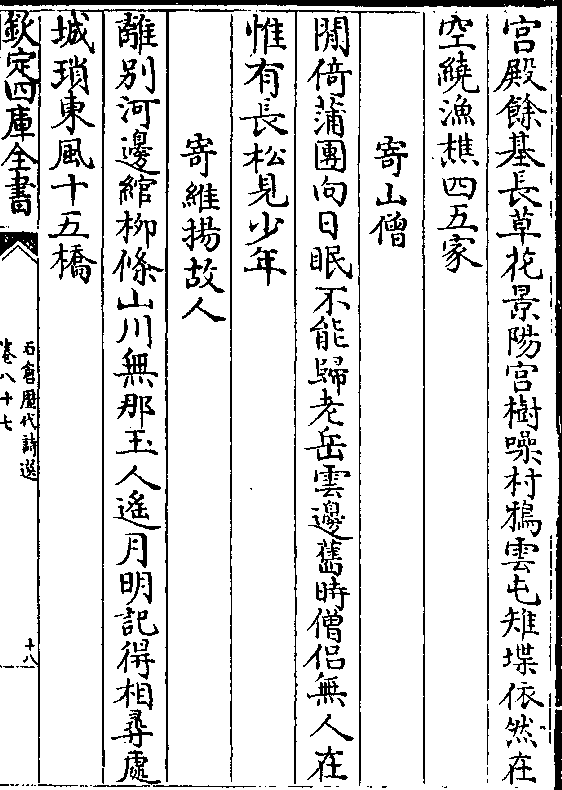 宮殿餘基長草花景陽宮樹噪村鴉雲屯雉堞依然在
空繞漁樵四五家
寄山僧
閒倚蒲團向日眠不能歸老岳雲邊舊時僧侶無人在
惟有長松見少年
寄維揚故人
離别河邊綰柳條山川無那玉人遙月明記得相尋處
城瑣東風十五橋
欽定四庫全書
石倉歷代詩選
卷八十七
十八